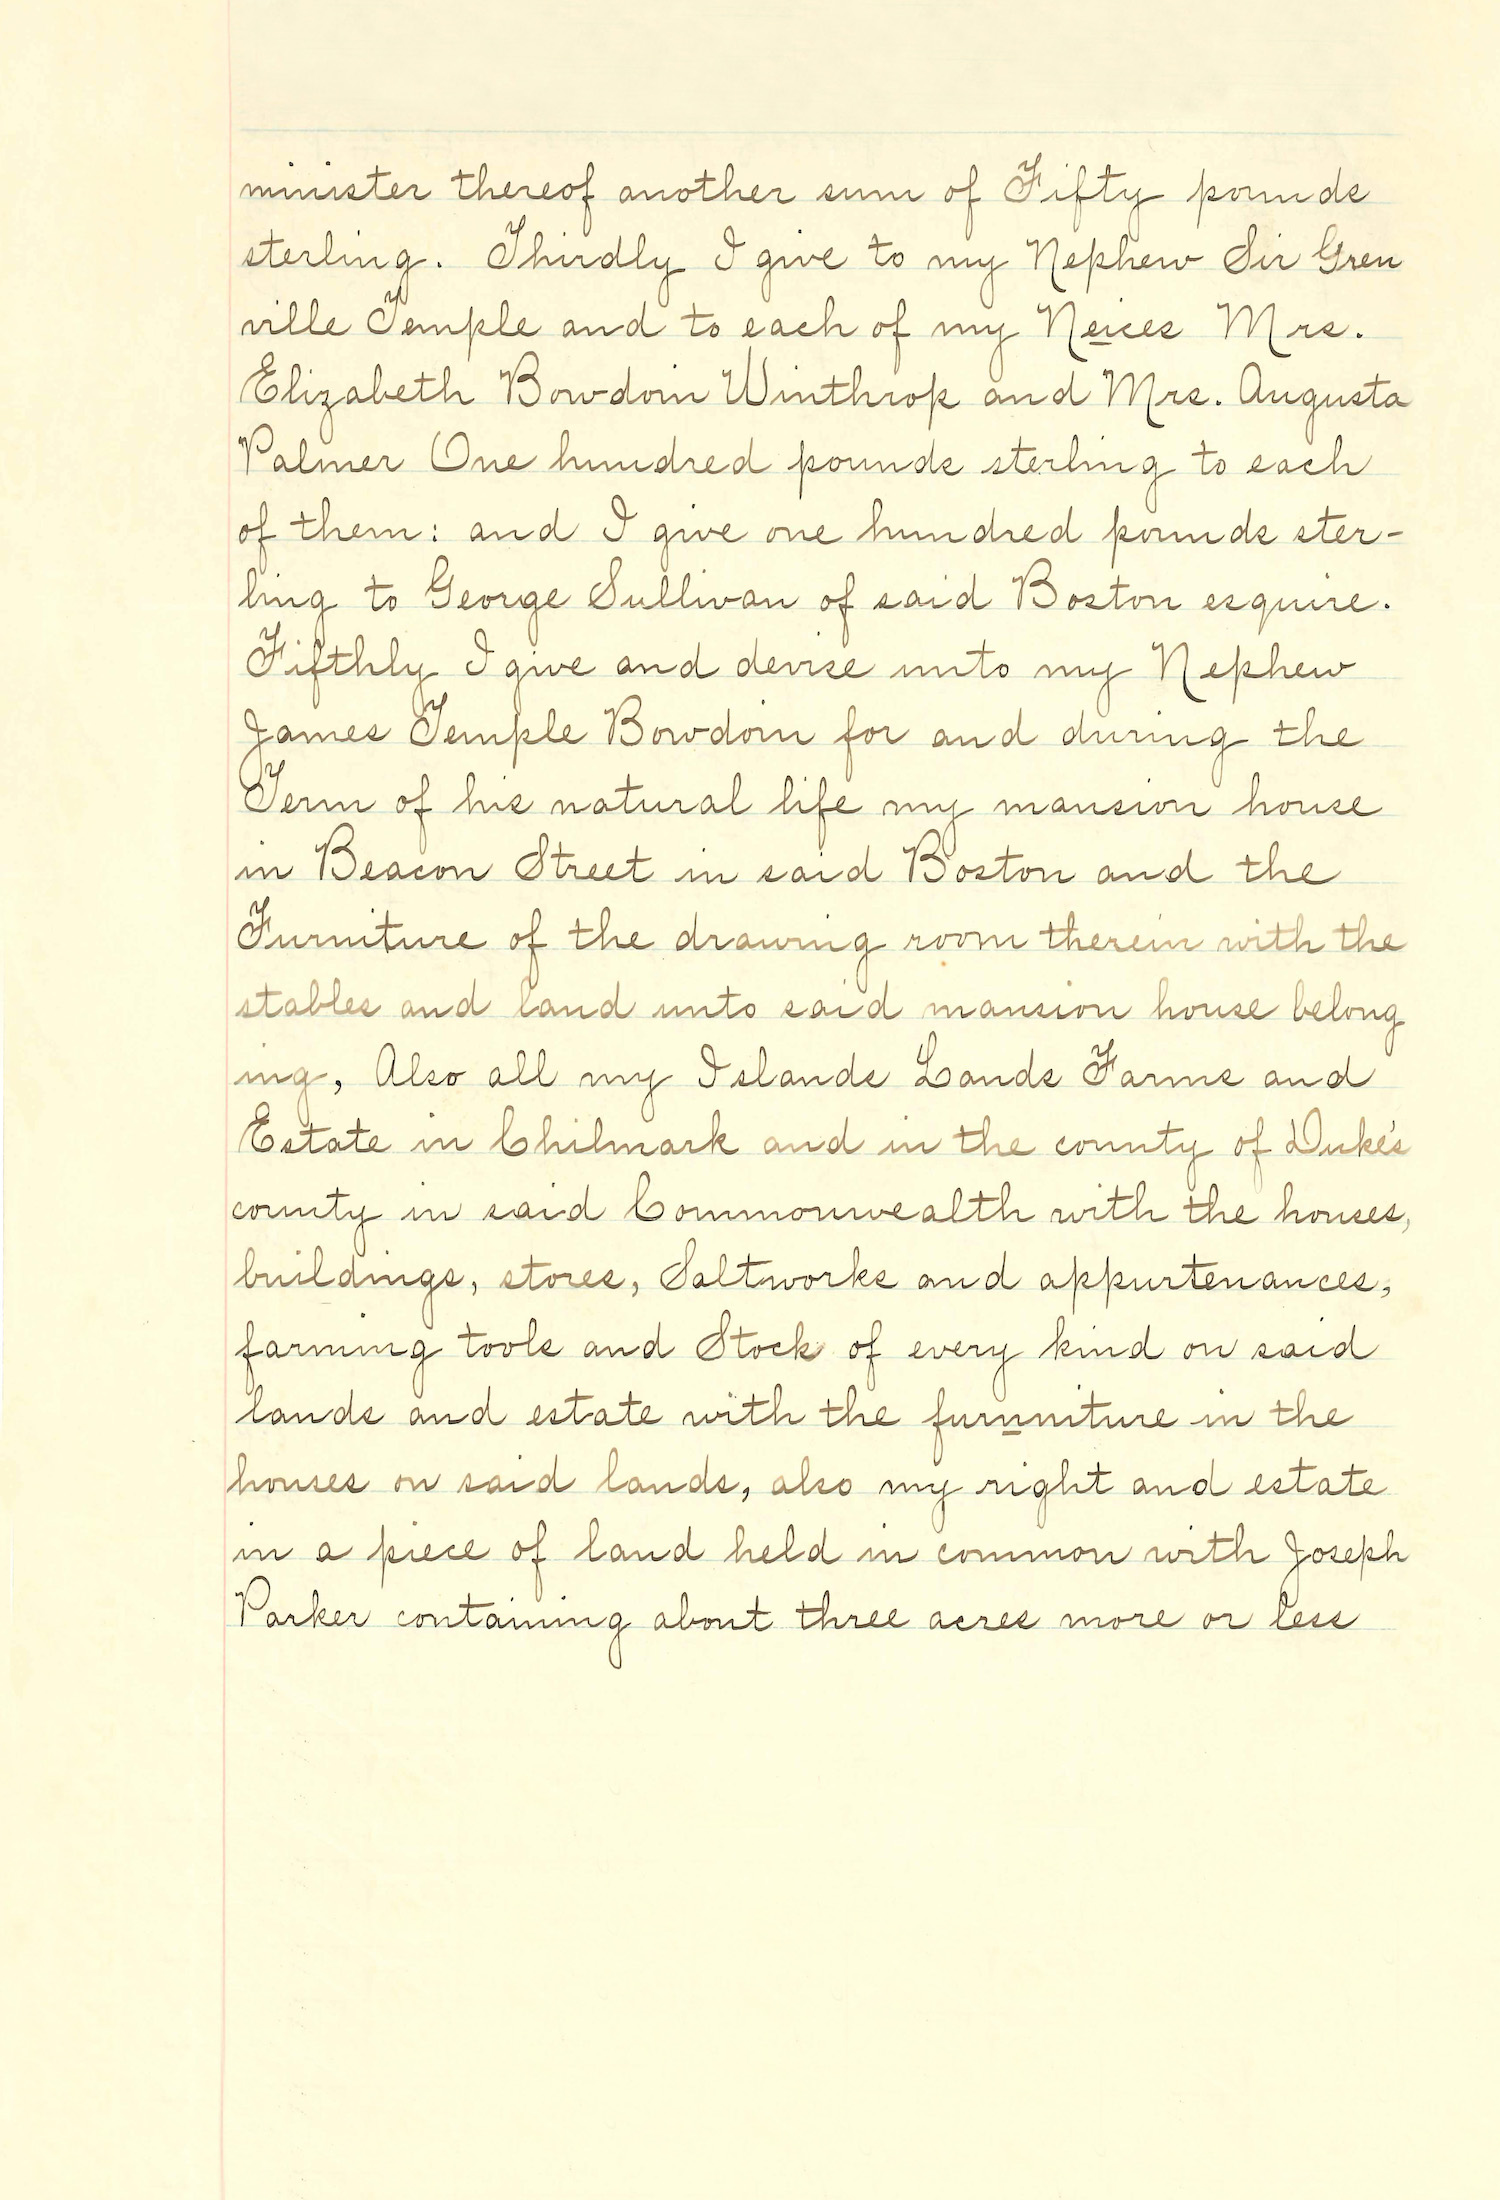 minister thereof another sum of Fifty pounds
sterling. Thirdly I give to my Nephew Sir Gren
ville Temple and to each of my Neices Mrs.
Elizabeth Bowdoin Winthrop and Mrs. Augusta
Palmer One hundred pounds sterling to each
of them: and I give one hundred pounds ster-
ling to George Sullivan of said Boston esquire.
Fifthly I give and devise unto my Nephew
James Temple Bowdoin for and during the
Term of his natural life my mansion house
in Beacon Street in said Boston and the
Furniture of the drawing room therein with the
stables and land unto said mansion house belong
ing, Also all my Islands Lands Farms and
Estate in Chilmark and in the county of Duke's
county in said Commonwealth with the houses,
buildings, stores, Saltworks and appurtenances,
farming tools and Stock of every kind on said
lands and estate with the furnniture in the
houses on said lands, also my right and estate
in a piece of land held in common with Joseph
Parker containing about three acres more or less